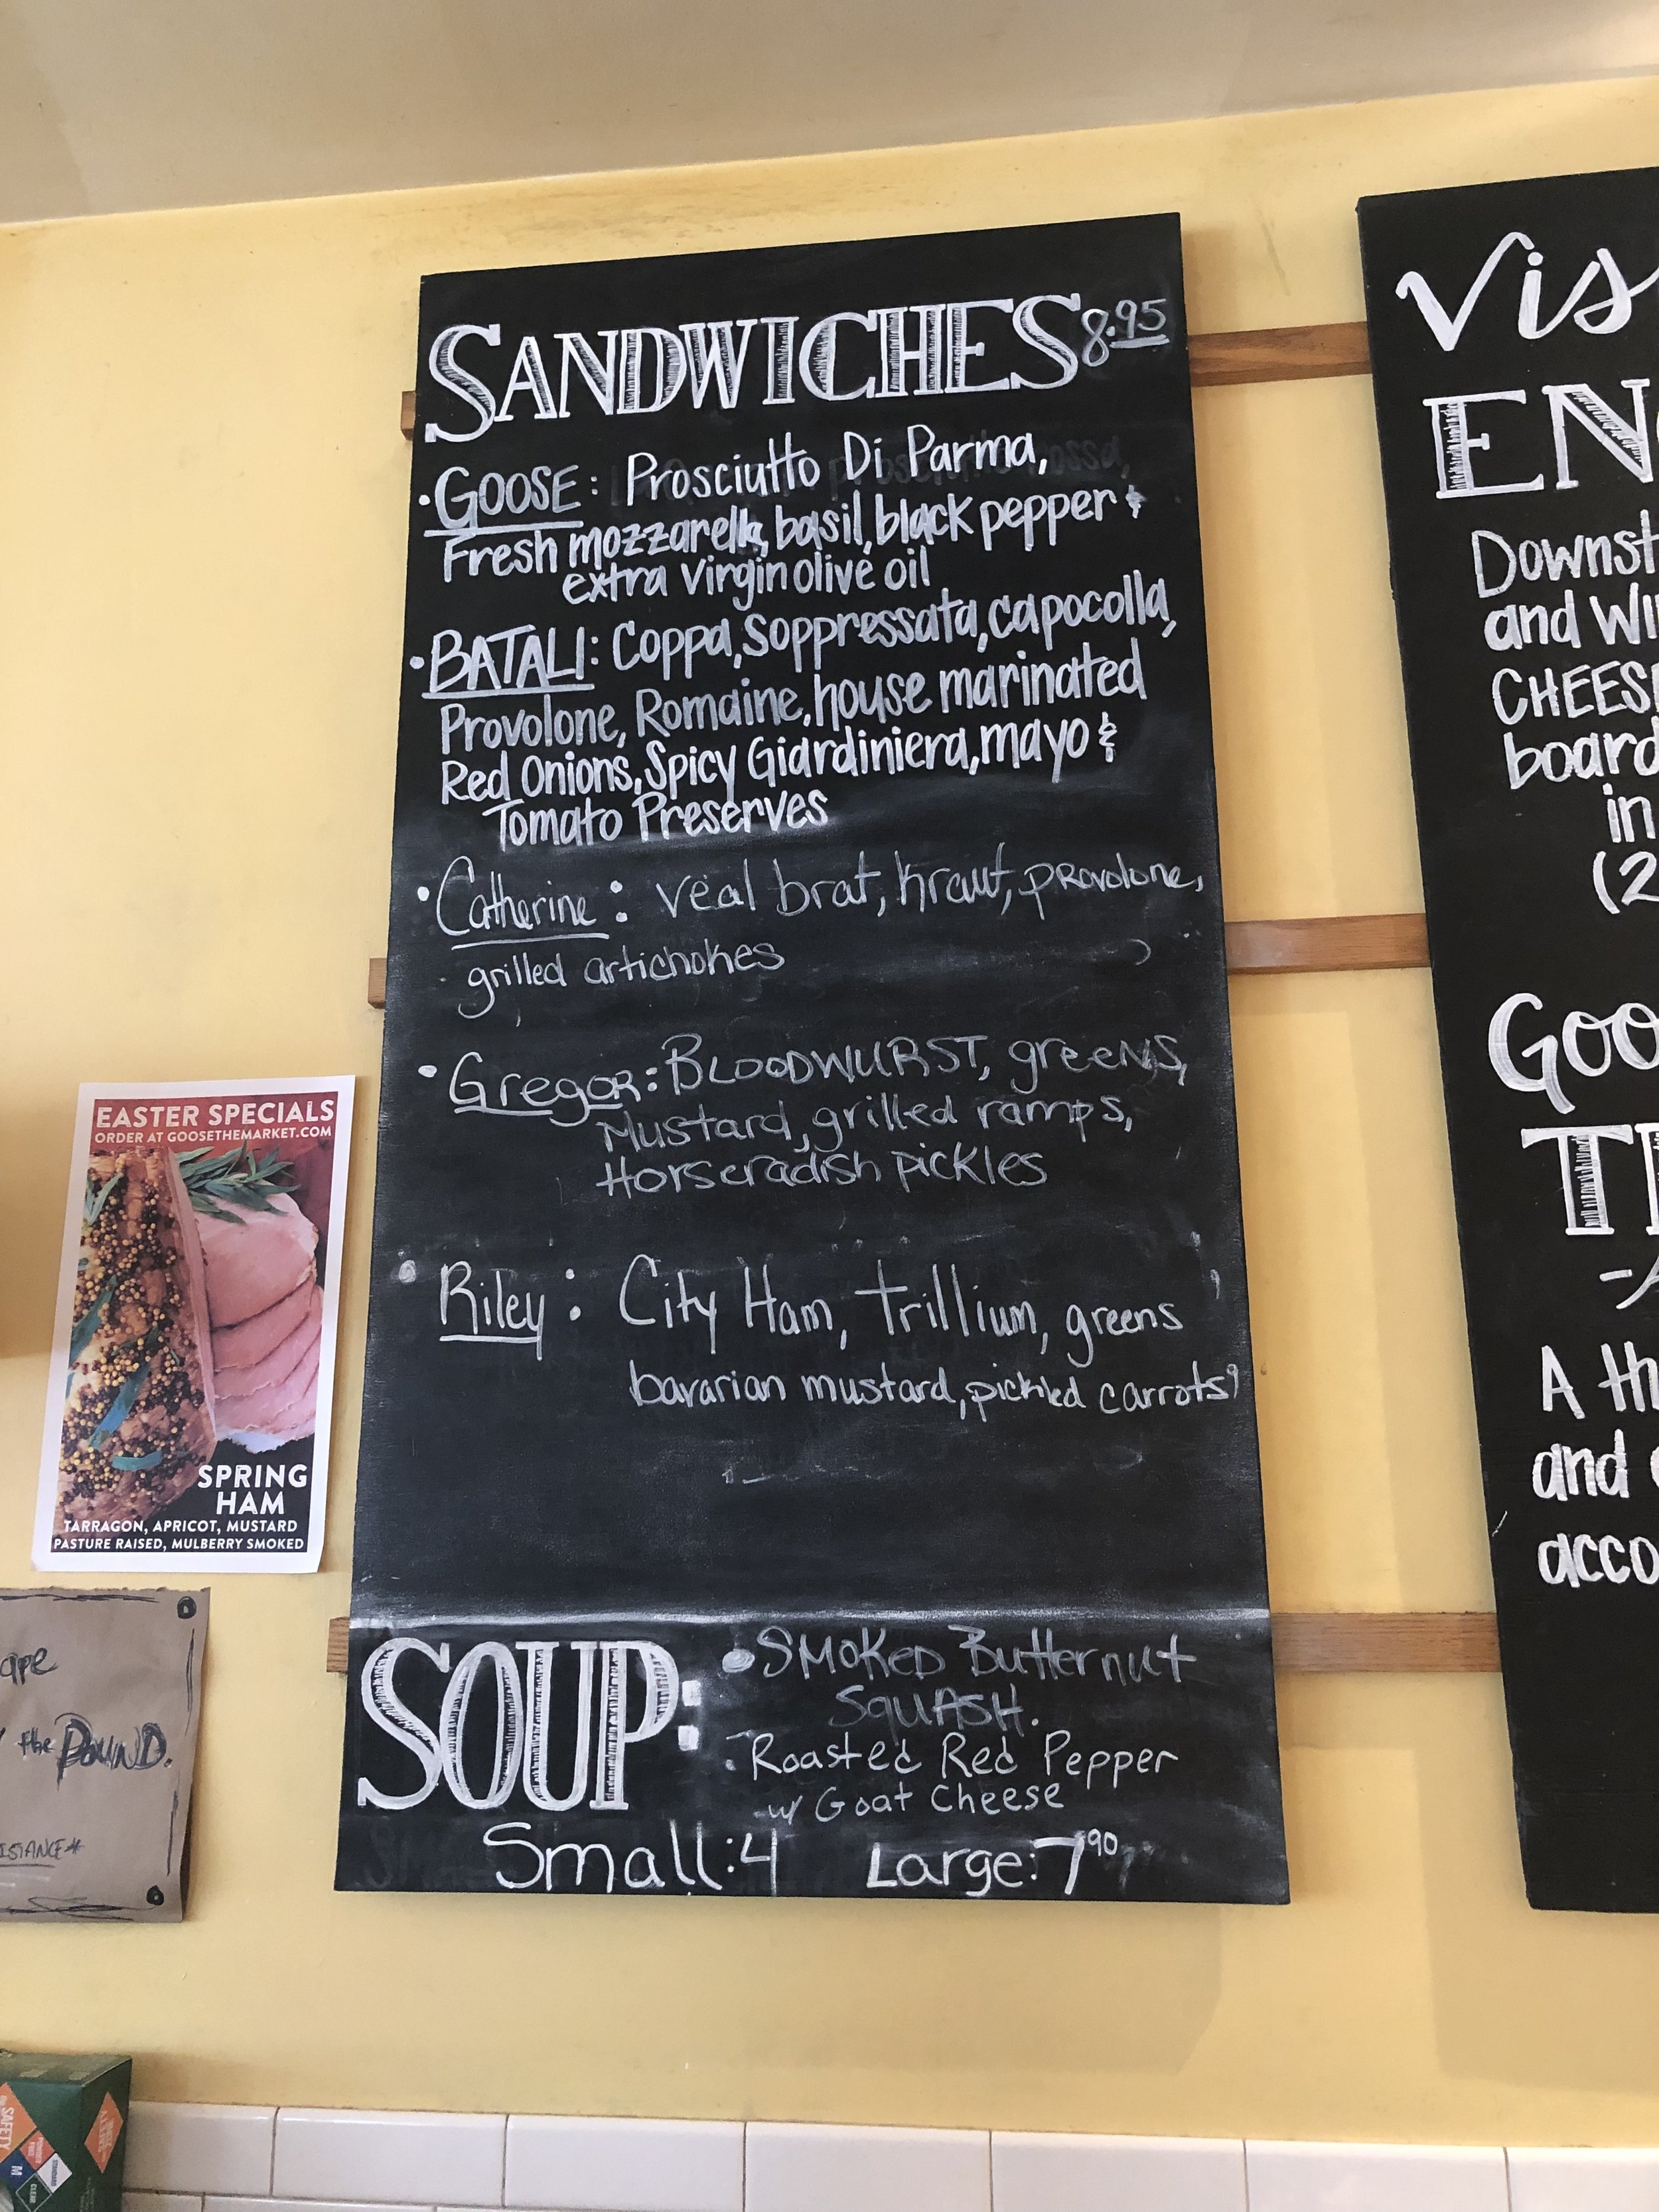 SANDWICHES 8.95
• GOOSE: Prosciutto Di Parma,
Fresh mozzarella, basil, black pepper &
extra virgin olive oil
• BATALI: Coppa, Soppressata, capocolla,
Provolone, Romaine, house marinated
Red Onions, Spicy Giardiniera, mayo &
Tomato Preserves
• Catherine: veal brat, kraut, provolone,
grilled artichokes
• Gregor: BLOODWURST, greens,
Mustard, grilled ramps,
Horseradish pickles
• Riley: City Ham, trillium, greens
bavarian mustard, pickled carrots
SOUP:
• SMOKED Butternut
SQUASH.
• Roasted Red Pepper
w/ Goat Cheese
Small: 4 Large: 7.90
EASTER SPECIALS
ORDER AT GOOSETHEMARKET.COM
SPRING
HAM
TARRAGON, APRICOT, MUSTARD
PASTURE RAISED, MULBERRY SMOKED
ape
the POUND.
ISTANCE*
Vis
EN
Downst
and Wi
CHEES
board
in
(2
GOO
T
A th
and
acco
SAFETY
M
CLEAR